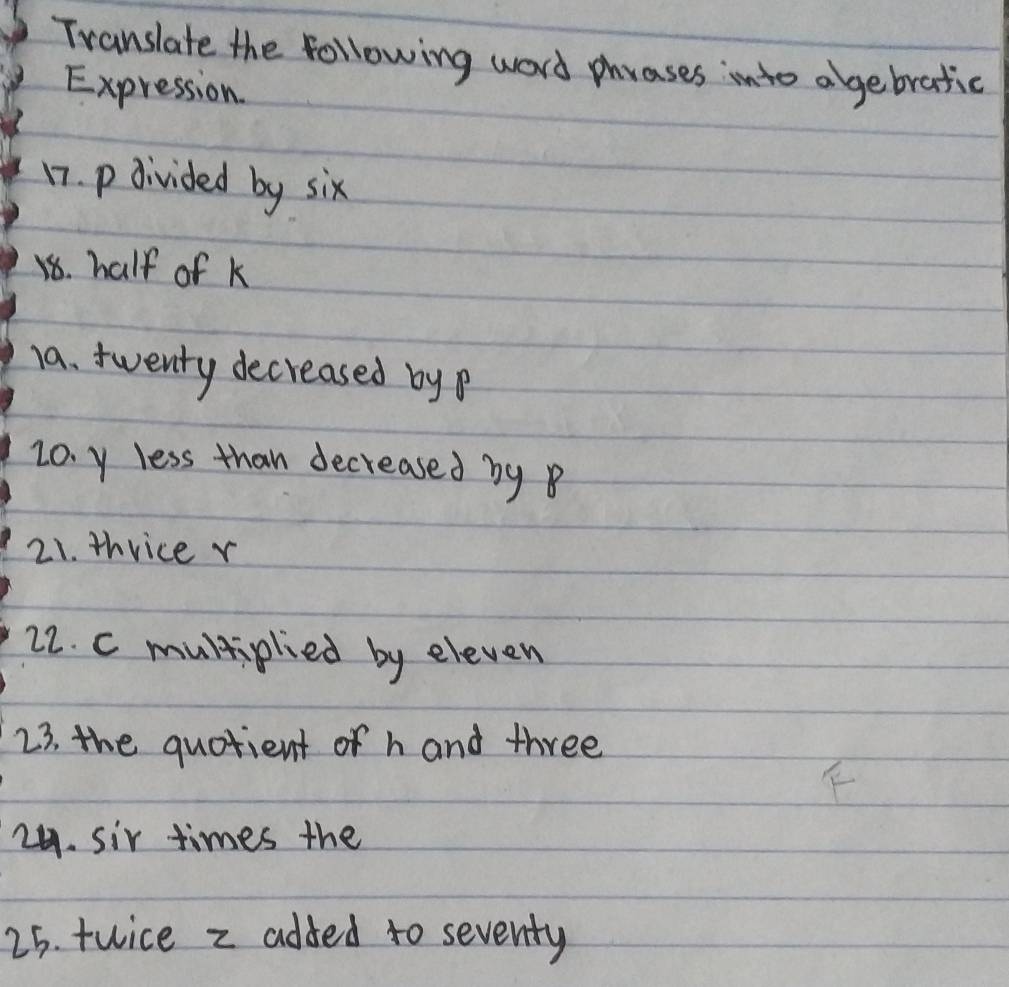 Translate the following word phrases into algebratic
Expression.
17. p divided by six
18. half of k
19. twenty decreased by p
20. y less than decreased by 8
21. thrice r
22. c multiplied by eleven
23. the quotient of h and three
F
24. sir times the
25. twice z added to seventy